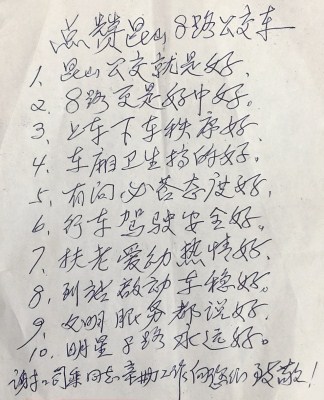 点赞昆山8路公交车
1. 昆山公交就是好.
2. 8路更是好中好.
3. 上车下车秩序好.
4. 车厢卫生搞的好.
5. 有问必答态度好.
6. 行车驾驶安全好.
7. 扶老爱幼热情好.
8. 到站启动车稳好.
9. 文明服务都说好.
10. 明星子路永远好.
谢谢司乘同志辛勤工作向您们致敬!